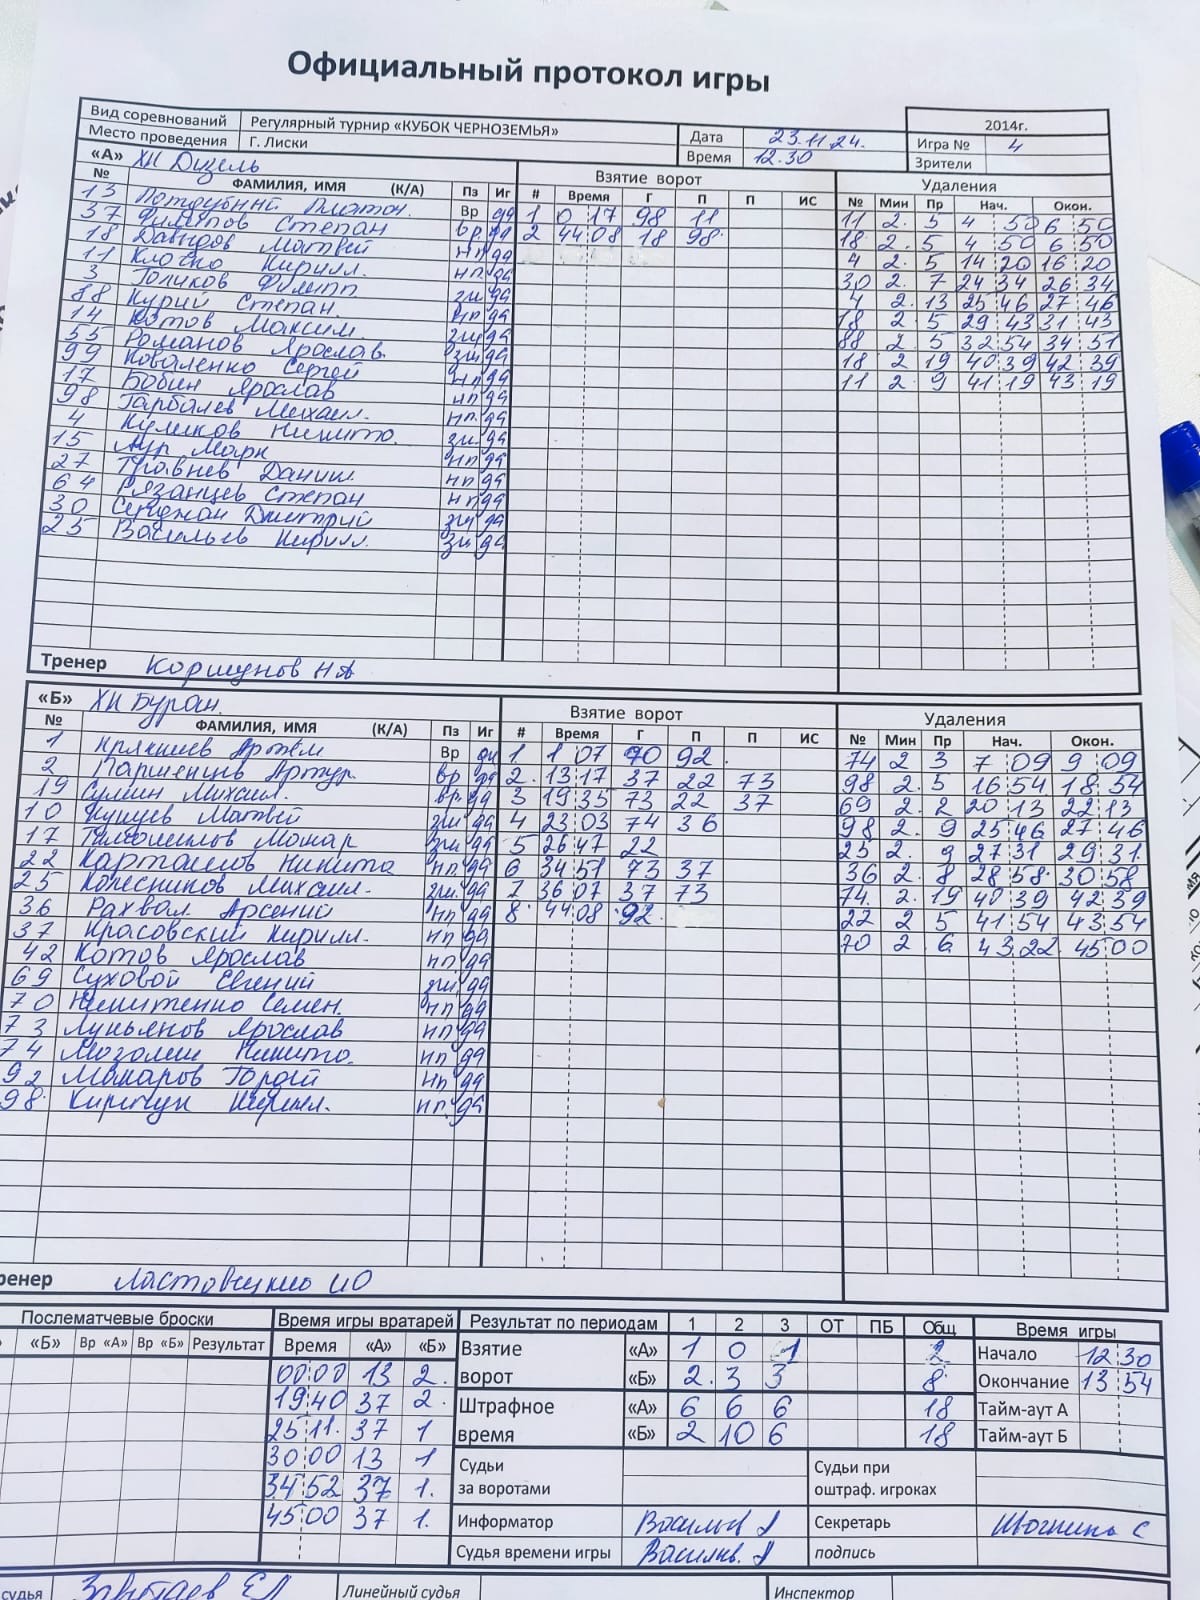 Официальный протокол игры
Вид соревнований Регулярный турнир «КУБОК ЧЕРНОЗЕМЬЯ» Дата 23.11.24. 2014г.
Место проведения Г. Лиски Время 12.30 Игра № 4
Зрители
«А» ХК Дизель Взятие ворот Удаления
№ ФАМИЛИЯ, ИМЯ (К/А) Пз Иг # Время Г П П ИС № Мин Пр Нач. Окон.
13 Платон. Вр да 1 0 17 98 11 11 2. 5 4 50 6 50
37 Филипов Степан вр. да 2 44 08 18 98 18 2. 5 4 50 6 50
18 Давыдов Матвей нп да 4 2. 5 14 20 16 20
11 Клочко Кирилл. нп. да 30 2. 7 24 34 26 34
3 Голиков Филипп зщ да 4 2. 13 25 46 27 46
88 Курий Степан. нп да 18 2 5 29 43 31 43
14 Котов Максим. зщ да 88 2 5 32 54 34 51
55 Романов Ярослав. зщ да 18 2 19 40 39 42 39
99 Коваленко Сергей нп да 11 2. 9 41 19 43 19
17 Бобин Ярослав нп. да
98 Михаил. нп. да
4 Куликов Никита. зщ да
15 Аур Марк нп да
27 Травнев Даниил. нп да
64 Рязанцев Степан нп да
30 Дмитрий зщ да
25 Васильев Кирилл. зщ да
Тренер Коршунов НА
«Б» ХК Буран. Взятие ворот Удаления
№ ФАМИЛИЯ, ИМЯ (К/А) Пз Иг # Время Г П П ИС № Мин Пр Нач. Окон.
1 Артём Вр да 1. 1 07 70 92. 74 2 3 7 09 9 09
2 Паршенцев Артур. вр да 2. 13 17 37 22 73 98 2. 5 16 54 18 54
19 Сумин Михаил. вр. да 3 19 35 73 22 37 69 2. 2 20 13 22 13
10 Матвей зщ. да 4 23 03 74 36 98 2. 9 25 46 27 46
17 Макар зщ. да 5 26 47 22 25 2. 9 27 31 29 31.
22 Карташов Никита нп. да 6 34 51 73 37 36 2. 8 28 58 30 58
25 Колесников Михаил. зщ. да 7 36 07 37 73 74. 2. 19 40 39 42 39
36 Рахвал Арсений нп да 8. 44 08 92. 22 2 5 41 54 43 54
37 Красовский Кирилл. нп да 70 2 6 43 22 45 00
42 Котов Ярослав нп. да
69 Суховой Евгений зщ да
70 Никитенко Семен. нп да
73 Лукьянов Ярослав нп да
74 Мозолин Никита. нп да
92 Макаров Гордей нп да
98. Кирилл. нп. да
ренер Ластовецкий
Послематчевые броски Время игры вратарей Результат по периодам 1 2 3 ОТ ПБ Общ Время игры
«Б» Вр «А» Вр «Б» Результат Время «А» «Б» Взятие «А» 1 0 1 2 Начало 12 30
00 00 13 2. ворот «Б» 2. 3 3 8 Окончание 13 54
19 40 37 2. Штрафное «А» 6 6 6 18 Тайм-аут А
25 11. 37 1 время «Б» 2 10 6 18 Тайм-аут Б
30 00 13 1 Судьи за воротами Судьи при оштраф. игроках
34 52 37 1.
45 00 37 1. Информатор Секретарь
Судья времени игры подпись
судья Линейный судья Инспектор